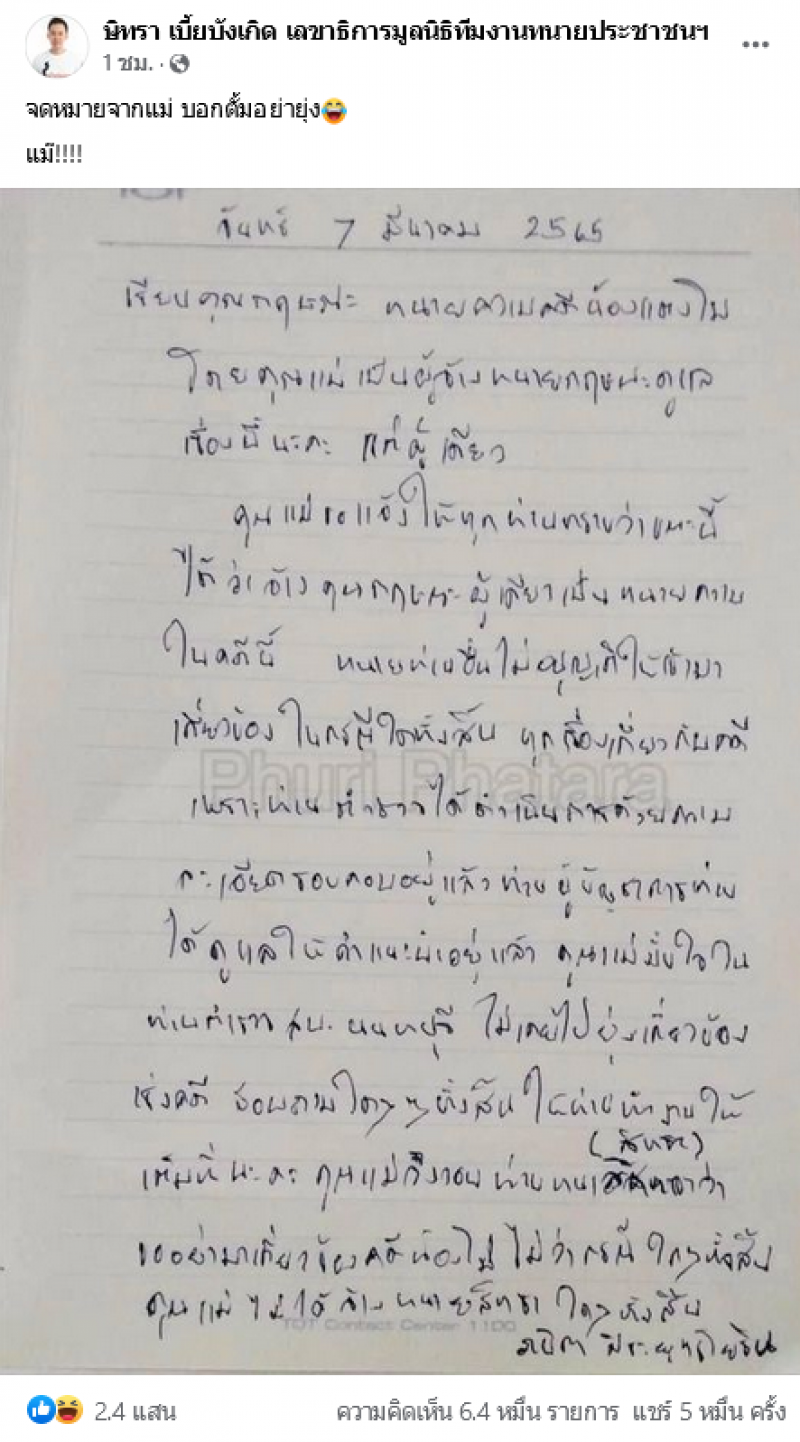 ษิทรา เบี้ยบังเกิด เลขาธิการมูลนิธิทีมงานทนายประชาชนฯ
1 ชม.
จดหมายจากแม่ บอกตั้มอย่ายุ่ง😂
แม๊!!!!
จันทร์ 7 มีนาคม 2565
เรียนคุณกฤษณะ ทนายความคดีน้องแตงโม
โดยคุณแม่เป็นผู้จ้างทนายกฤษณะดูแล
เรื่องนี้นะคะ แต่ผู้เดียว
คุณแม่ขอแจ้งให้ทุกท่านทราบว่าขณะนี้
ได้ว่าจ้างคุณกฤษณะผู้เดียวเป็นทนายความ
ในคดีนี้ ทนายท่านอื่นไม่อนุญาตให้เข้ามา
เกี่ยวข้องในกรณีใดทั้งสิ้น ทุกเรื่องเกี่ยวกับคดี
Phuri Phatara
เพราะท่านตำรวจได้ดำเนินการด้วยความ
ละเอียดรอบคอบอยู่แล้ว ท่านผู้บัญชาการท่าน
ได้ดูแลให้คำแนะนำอยู่แล้ว คุณแม่มั่นใจใน
ท่านตำรวจ สภ. นนทบุรี ไม่เคยไปยุ่งเกี่ยวข้อง
เรื่องคดี สอบถามใดๆ ทั้งสิ้น ให้ท่านทำงานให้
(สิทรา)
เต็มที่นะคะ คุณแม่จึงวอนท่านทนาย ว่า
ขออย่ามาเกี่ยวข้องคดีน้องโม ไม่ว่ากรณีใดๆทั้งสิ้น
คุณแม่ไม่ได้จ้างทนายสิทรา ใดๆทั้งสิ้น
TOT Contact Center 1100
ภนิดา ศิระยุทธโยธิน
2.4 แสน
ความคิดเห็น 6.4 หมื่น รายการ แชร์ 5 หมื่น ครั้ง